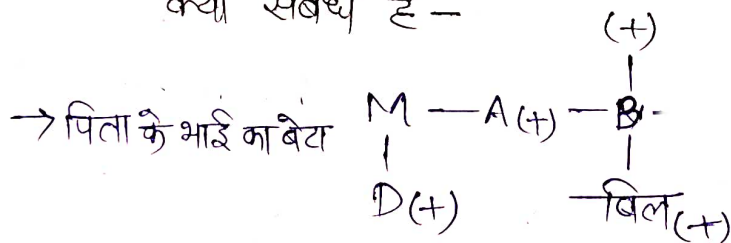 क्या संबंध है -
(+)
→ पिता के भाई का बेटा M - A(+) - B -
D(+) बिल(+)